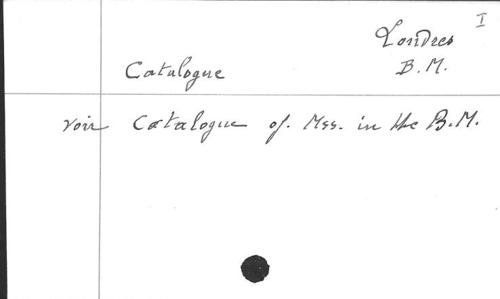 I
Londres
Catalogue B.M.
voir Catalogue of. Mss. in the B.M.